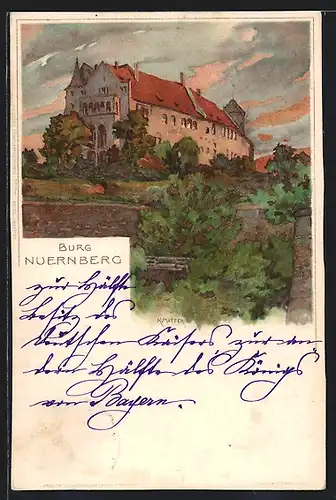 BURG
NUERNBERG
K. MUTTER
zur Hälfte
Besitz des
deutschen Kaisers, zur an
dern Hälfte des Königs
von Bayern.